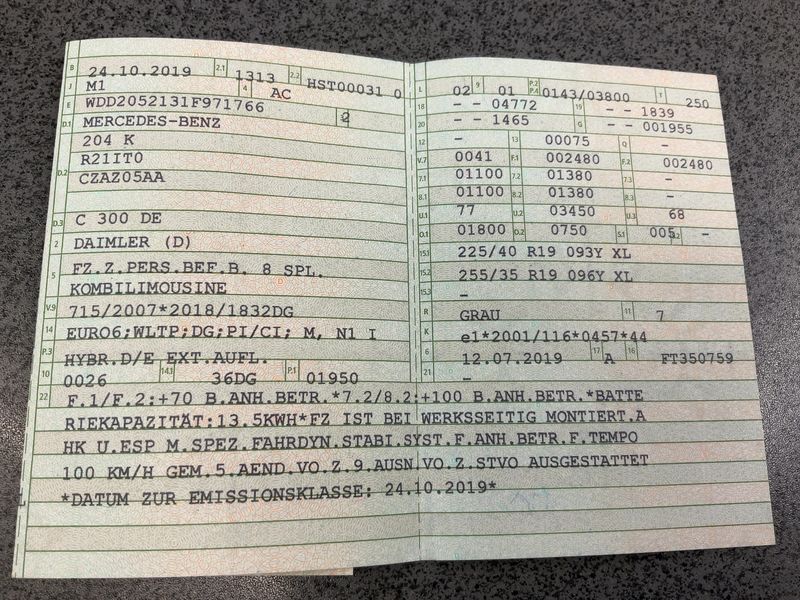 B 24.10.2019 2.1 1313 2.2 HST00031 0
J M1 4 AC
E WDD2052131F971766 3 2
D.1 MERCEDES-BENZ
204 K
D.2 R21IT0
CZAZ05AA
D.3 C 300 DE
2 DAIMLER (D)
5 FZ.Z.PERS.BEF.B. 8 SPL.
KOMBILIMOUSINE
V.9 715/2007*2018/1832DG
14 EURO6;WLTP;DG;PI/CI; M, N1 I
P.3 HYBR.D/E EXT.AUFL.
10 0026 14.1 36DG P.1 01950
L 02 9 01 P.2 P.4 0143/03800 T 250
18 - - 04772 19 - - 1839
20 - - 1465 G - - 001955
12 - 13 00075 Q -
V.7 0041 F.1 002480 F.2 002480
7.1 01100 7.2 01380 7.3 -
8.1 01100 8.2 01380 8.3 -
U.1 77 U.2 03450 U.3 68
O.1 01800 O.2 0750 S.1 005 S.2 -
15.1 225/40 R19 093Y XL
15.2 255/35 R19 096Y XL
15.3 -
R GRAU 11 7
K e1*2001/116*0457*44
6 12.07.2019 17 A 16 FT350759
21 -
22 F.1/F.2:+70 B.ANH.BETR.*7.2/8.2:+100 B.ANH.BETR.*BATTE
RIEKAPAZITÄT:13.5KWH*FZ IST BEI WERKSSEITIG MONTIERT.A
HK U.ESP M.SPEZ.FAHRDYN.STABI.SYST.F.ANH.BETR.F.TEMPO
100 KM/H GEM.5.AEND.VO.Z.9.AUSN.VO.Z.STVO AUSGESTATTET
*DATUM ZUR EMISSIONSKLASSE: 24.10.2019*